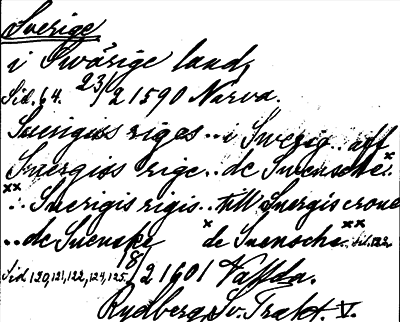 Sverige
i Swärige land,
Sid. 64. 23/2 1590 Narva.
Suerigiss riges .. i Swerig .. aff
Suergiss rige .. de Swensche x.
xx .. Suerigis rigis .. till Suergis crone
.. de Suenske x de Suensche xx sid. 122
Sid 120, 121, 122, 124, 125. 18/2 1601
Rydberg, Sv. Trakt. V.